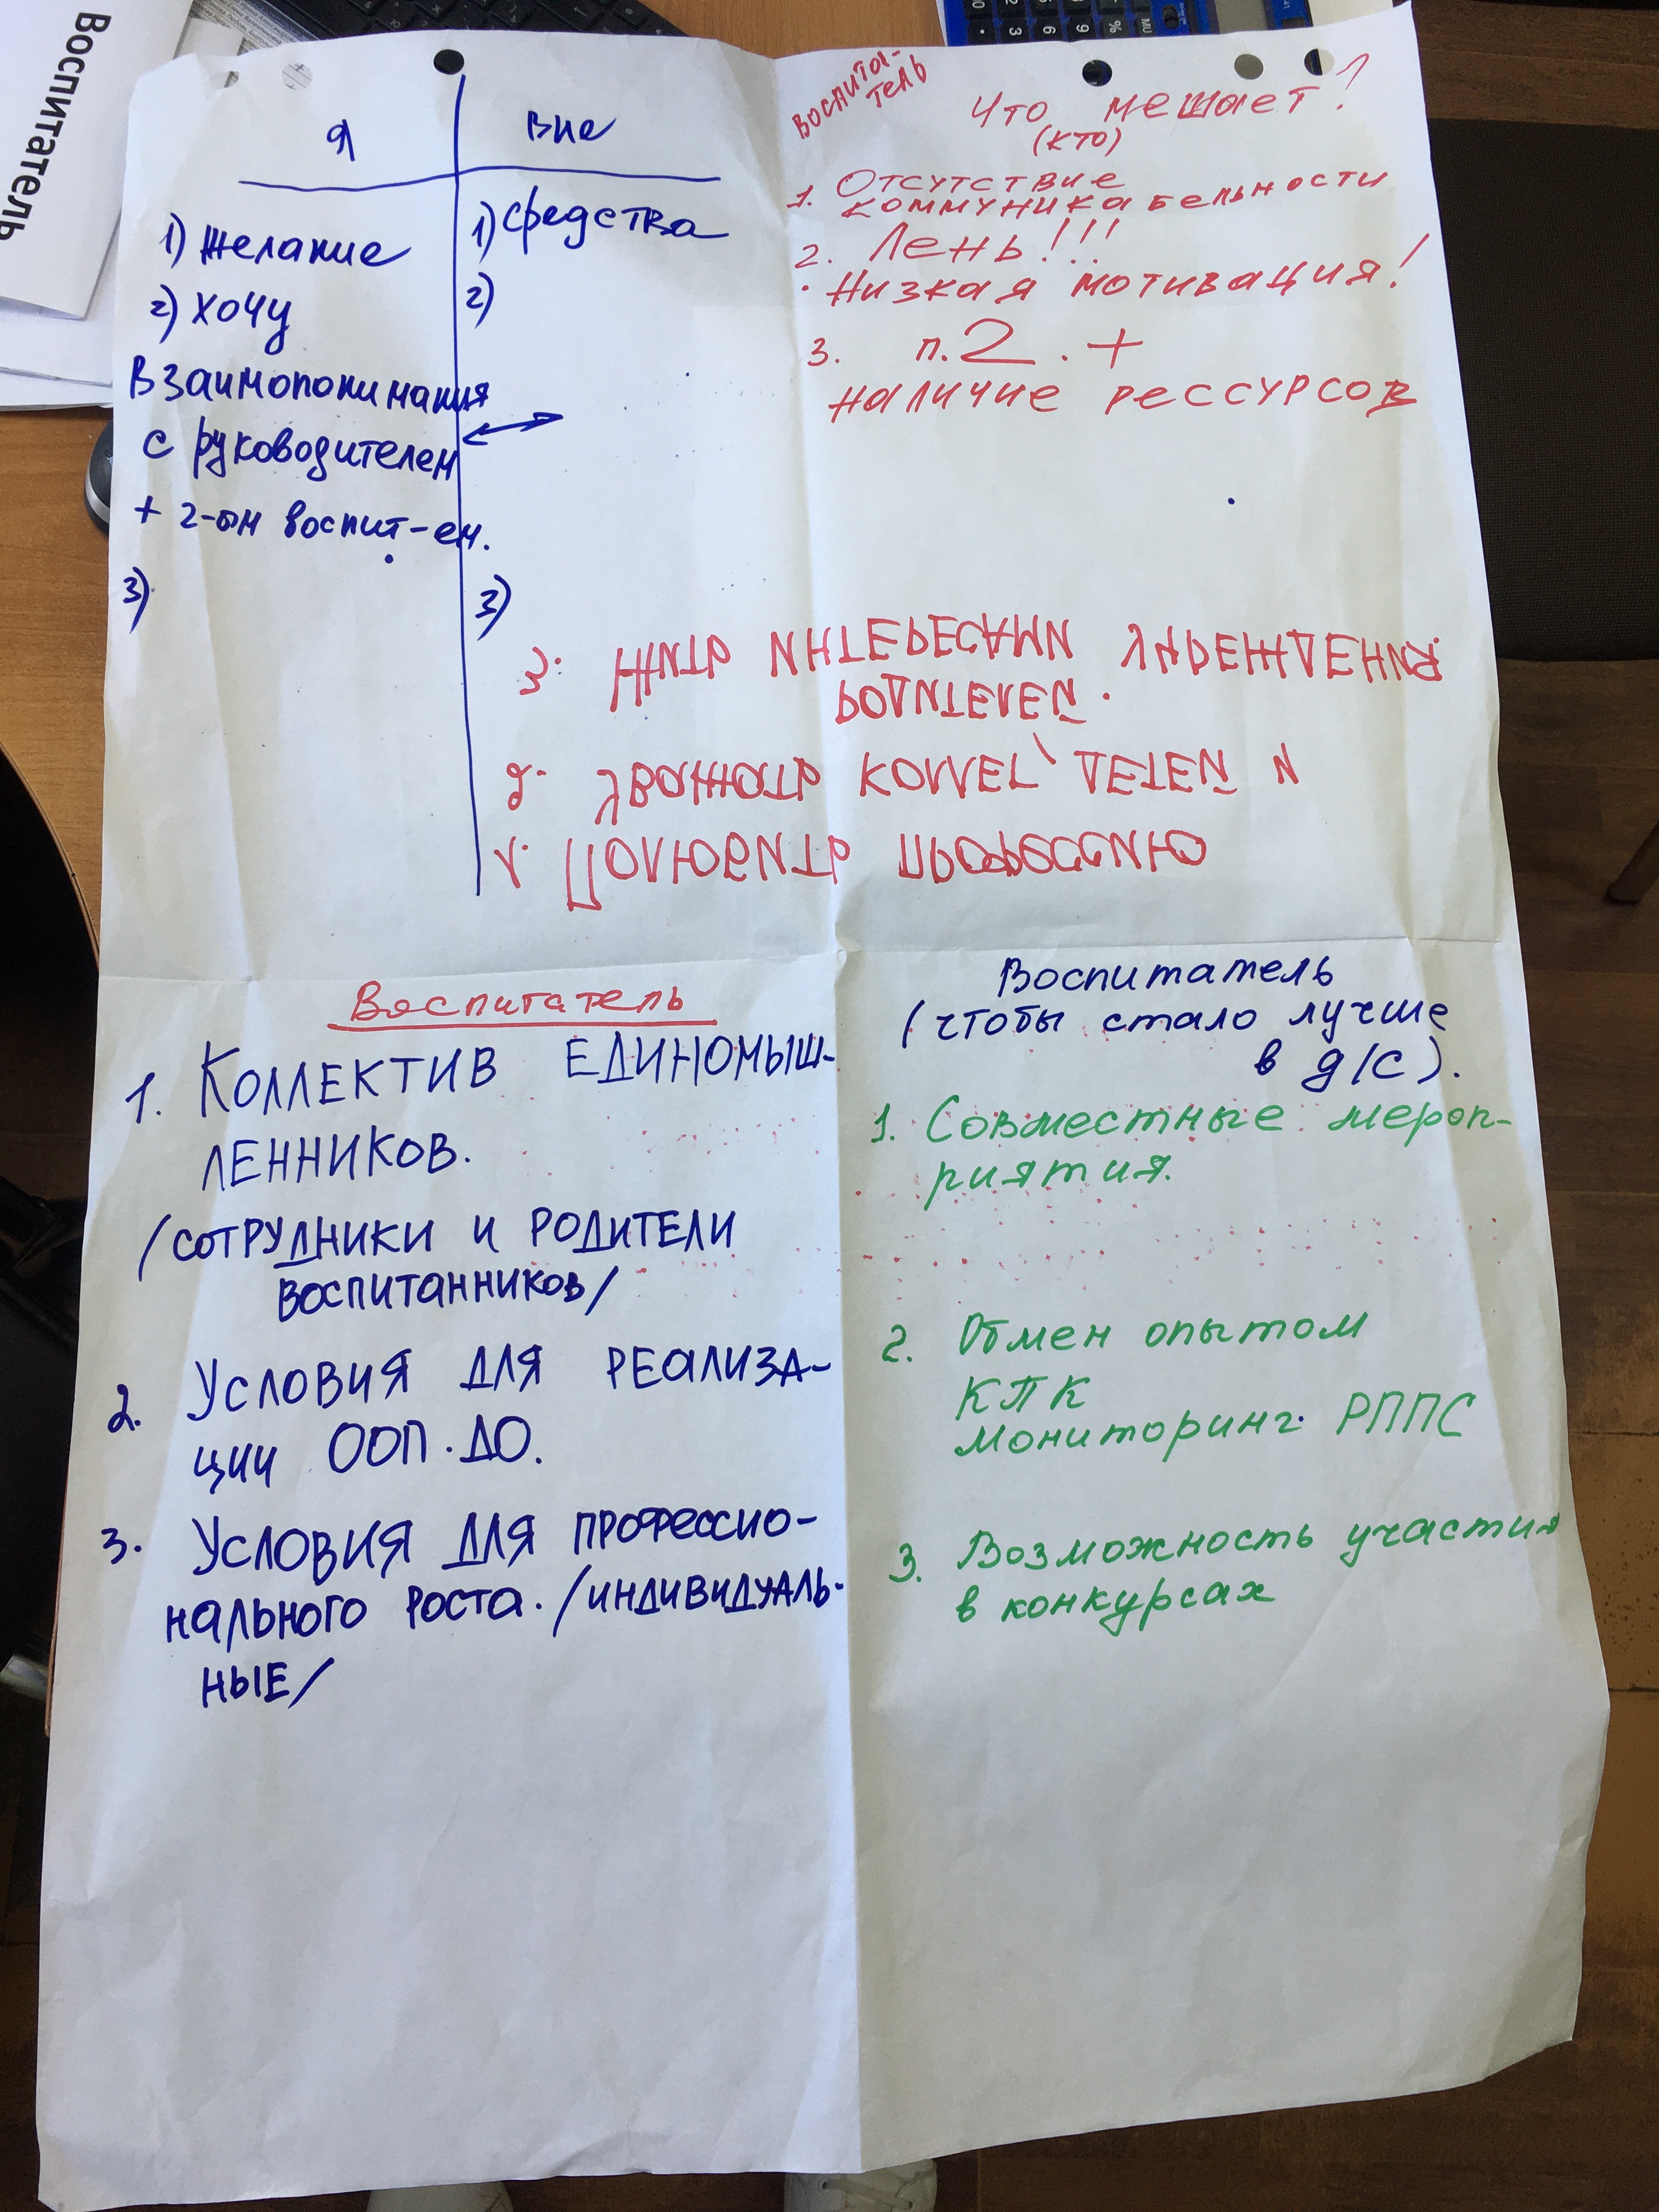 Воспитатель
Я
вне
1) желание
2) хочу
Взаимопонимания
с руководителем
+ 2-ым воспит-ем.
3)
1) средства
2)
3)
Воспита-
тель
Что мешает?
(кто)
1. Отсутствие
коммуникабельности
2. Лень!!!
· Низкая мотивация!
3. п.2. +
наличие рессурсов
1. Полюбить профессию
2. Уважать коллег, детей и
родителей.
3. Жить интересами учреждения.
Воспитатель
1. Коллектив единомыш-
ленников.
/сотрудники и родители
воспитанников/
2. Условия для реализа-
ции ООП.ДО.
3. Условия для профессио-
нального роста. /индивидуаль-
ные/
Воспитатель
(чтобы стало лучше
в д/с).
1. Совместные мероп-
риятия.
2. Обмен опытом
КПК
мониторинг РППС
3. Возможность участия
в конкурсах